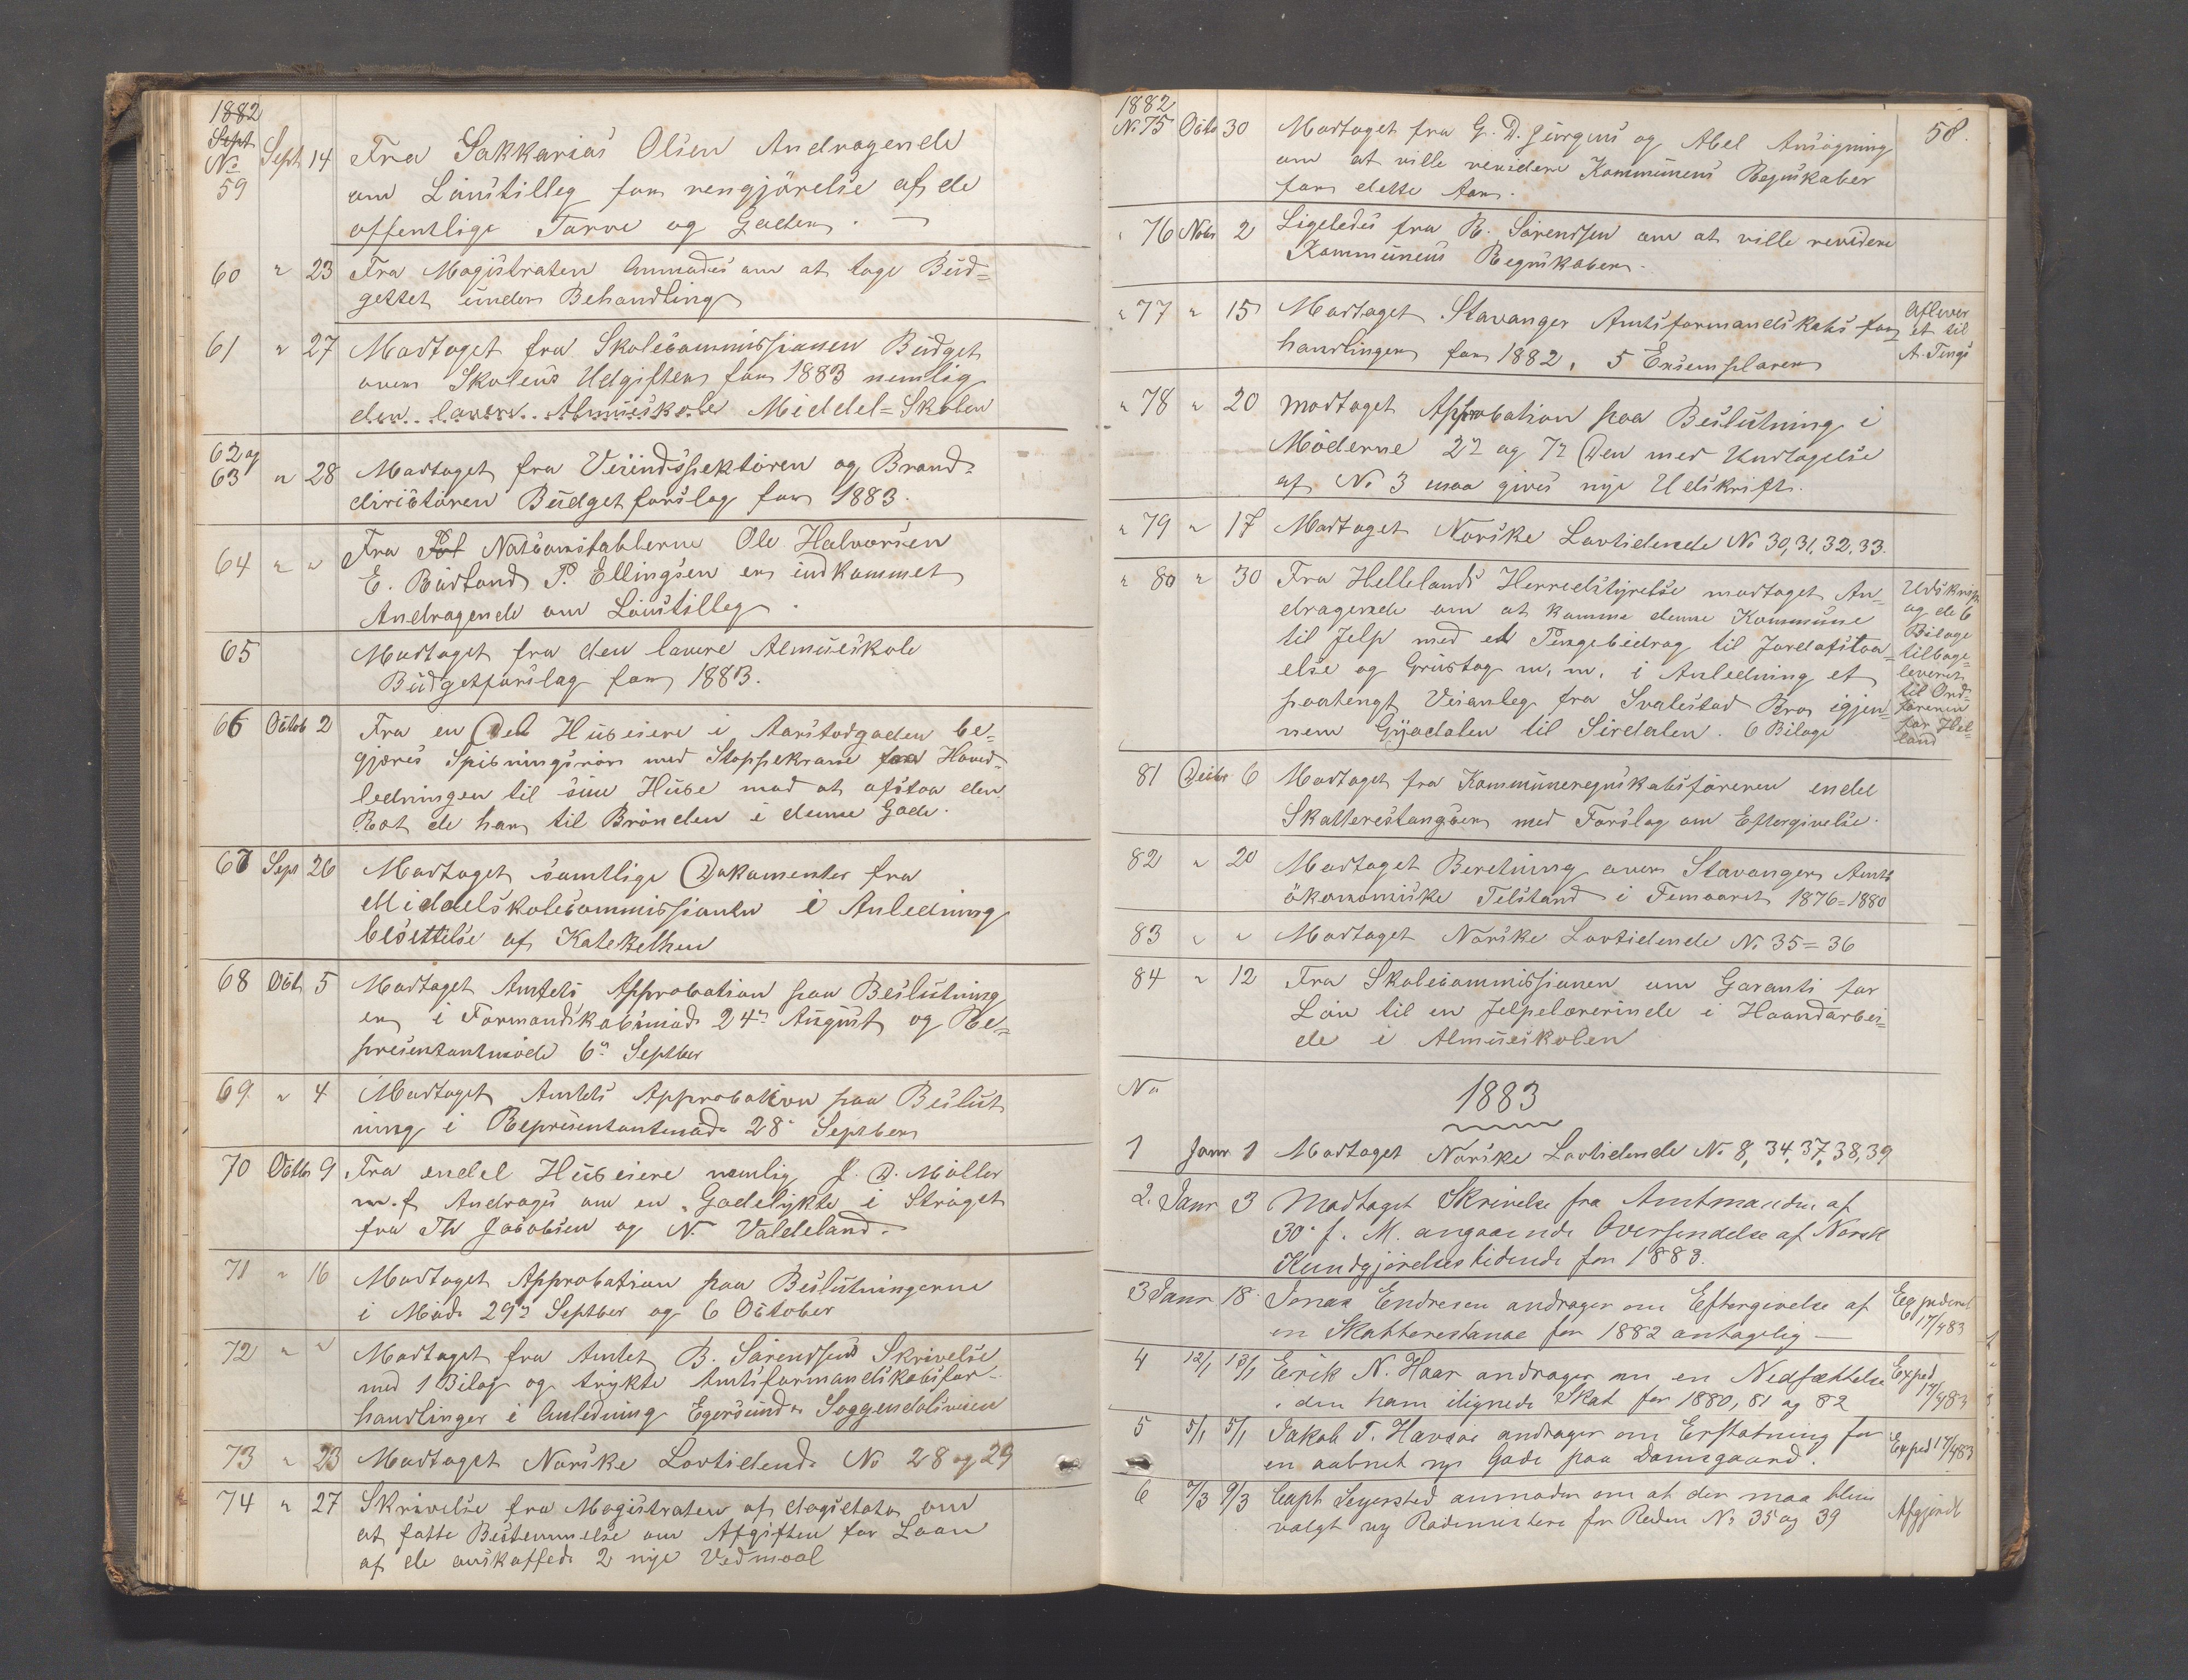 1882
Sept
No
59 Sept 14 Fra Sakkarias Olsen Andragende
om Lönstilleg for rengjörelse af de
offentlige Torve og Gader.
60 " 23 Fra Magistraten Anmodes om at tage Bud=
gettet under Behandling
61 " 27 Modtaget fra Skolecommissionen Budget
over Skolens Udgifter for 1883 nemlig
den lavere Almueskole Middel=Skolen
62 og
63 " 28 Modtaget fra Veiindspektören og Brand=
dirictören Budgetforslag for 1883.
64 " " Fra Pol Natconstablerne Ole Halvorsen
E. Birkland P. Ellingsen er indkommet
Andragende om Lönstilleg.
65 Modtaget fra den lavere Almueskole
Budgetforslag for 1883.
66 Octob 2 Fra en Del Huseiere i Aarstadgaden be=
gjæres Spisningsrör med Stoppekrane fra Hoved=
ledningen til sine Huse mod at afstaa den
Ret de har til Brönden i denne Gade.
67 Sept 26 Modtaget samtlige Dokumenter fra
Middelskolecommissionen i Anledning
besettelse af Katekethen
68 Oct 5 Modtaget Amtets Approbation paa Beslutning
er i Formandskabsmöde 24n August og Re=
presentantmöde 6n Septber
69. " 4 Modtaget Amtets Approbation paa Beslut
ning i Represintantmöde 28 Septber
70 Octbr 9 Fra endel Huseiere nemlig J. D. Möller
m.f. Andrager om en Gadelykte i Ströget
fra Th Jacobsen og N. Valdeland.
71 " 16 Modtaget Approbation paa Beslutningerne
i Möde 29n Septber og 6 October
72 " " Modtaget fra Amtet B. Sörendsens Skrivelse
med 1 Bilag og trykte Amtsformandskabsfor=
handlinger i Anledning Egersund Soggendalsveien
73 " 23 Modtaget Norske Lovtidende No 28 og 29
74 " 27 Skrivelse fra Magistraten af dagsdato om
at fatte Bestemmelse om Afgiften for Laan
af de anskaffede 2 nye Vedmaal
1882
No 75 Octb 30 Modtaget fra G. D. Jürgens og Abel Ansögning 58.
om at ville revidere Kommunens Regnskaber
for dette Aar.
" 76 Nobr 2 Ligeledes fra R. Sörendsen om at ville revidere
Kommunens Regnskaber.
" 77 " 15 Modtaget Stavanger Amtsformandskabs for=
handlinger for 1882, 5 Exsemplarer
Aflever
et til
A. Tengs
" 78 " 20 Modtaget Approbation paa Beslutning i
Möderne 2n og 7n Den med Undtagelse
af No 3 maa gives nye Udskrift.
" 79 " 17 Modtaget Norske Lovtidende No 30, 31, 32, 33.
" 80 " 30 Fra Hellelands Herredstyrelse modtaget An=
dragende om at komme denne Kommune
til Jelp med et Pengebidrag til Jordafstaa=
else og Grustag m. m. i Anledning et
paatengt Veianleg fra Svalestad Bro igjen=
nem Gyadalen til Sirdalen. 6 Bilage
Udskrift
og de 6
Bilage
tilbage=
leveret
til Ord=
föreren
for Hel=
land
81 Decbr 6 Modtaget fra Kommuneregnskabsföreren endel
Skatterestangser med Forslag om Eftergivelse.
82 " 20 Modtaget Beretning over Stavanger Amts
ökonomiske Tilstand i Femaaret 1876=1880
83 " " Modtaget Norske Lovtidende No 35=36
84 " 12 Fra Skolecommissionen om Garanti for
Lön til en Jelpelærerinde i Haandarbei=
de i Almueskolen
No 1883
1 Janr 1 Modtaget Norske Lovtidende No 8, 34, 37, 38, 39
2. Janr 3 Modtaget Skrivelse fra Amtmanden af
30' f. M. angaaende Oversendelse af Norsk
Kundgjörelsestidende for 1883.
3 Janr 18 Jonas Endresen andrager om Eftergivelse af
en Skatterestanse for 1882 antagelig —
Expederet
17/4 83
4 12/1 13/1 Erik N. Haar andrager om en Nedsættelse
i den ham ilignede Skat for 1880, 81 og 82
Exped
17/4 83
5 5/1 5/1 Jakob T. Havsöe andrager om Erstatning for
en aabnet ny Gade paa Damsgaard.
Exped 17/4 83
6 7/3 9/3 Capt Seyersted anmoder om at der maa blive
valgt ny Rodemestere for Roden No 35 og 39
Afgjordt